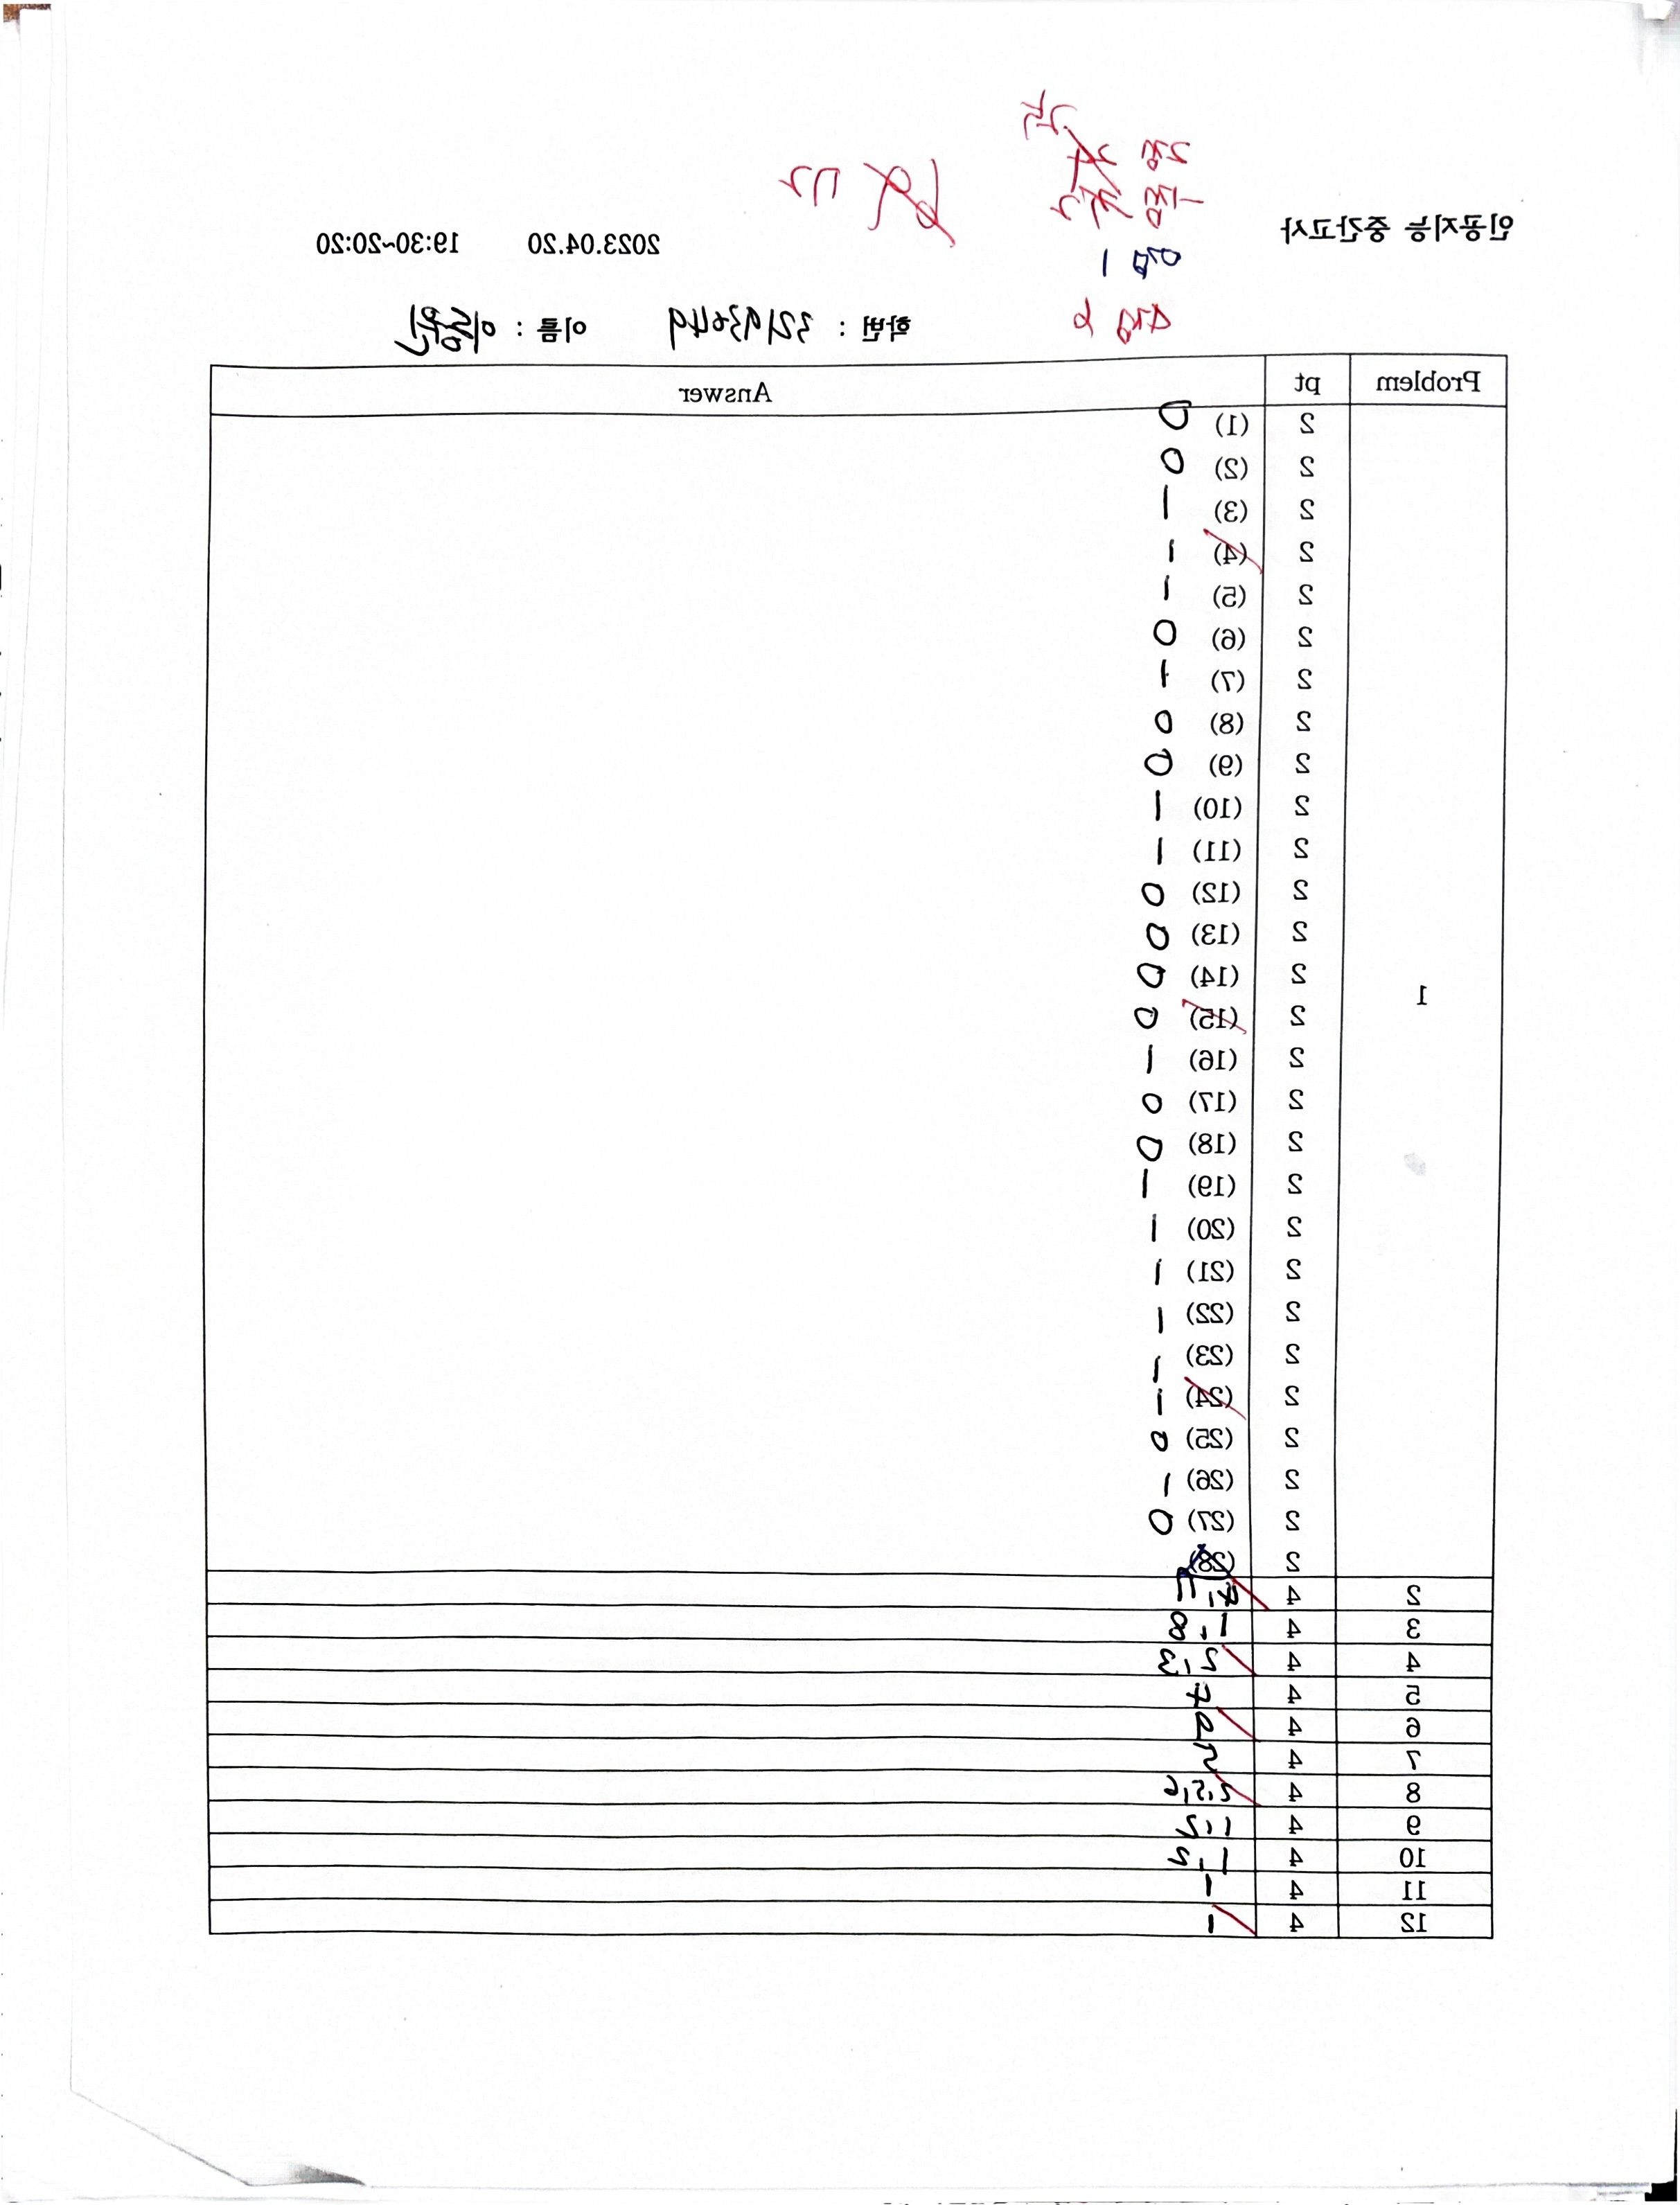 인공지능 중간고사 2023.04.20 19:30~20:20
학번 : 32193649 이름 : 이동원
Problem pt Answer
1
2 (1) 0
2 (2) 0
2 (3) 1
2 (4) 1
2 (5) 1
2 (6) 0
2 (7) 1
2 (8) 0
2 (9) 0
2 (10) 1
2 (11) 1
2 (12) 0
2 (13) 0
2 (14) 0
2 (15) 0
2 (16) 1
2 (17) 0
2 (18) 0
2 (19) 1
2 (20) 1
2 (21) 1
2 (22) 1
2 (23) 1
2 (24) 1
2 (25) 0
2 (26) 1
2 (27) 0
2 (28)
2 4
3 4 1-8
4 4 2-3
5 4 7
6 4 2
7 4 2
8 4
9 4
10 4
11 4 1
12 4 1